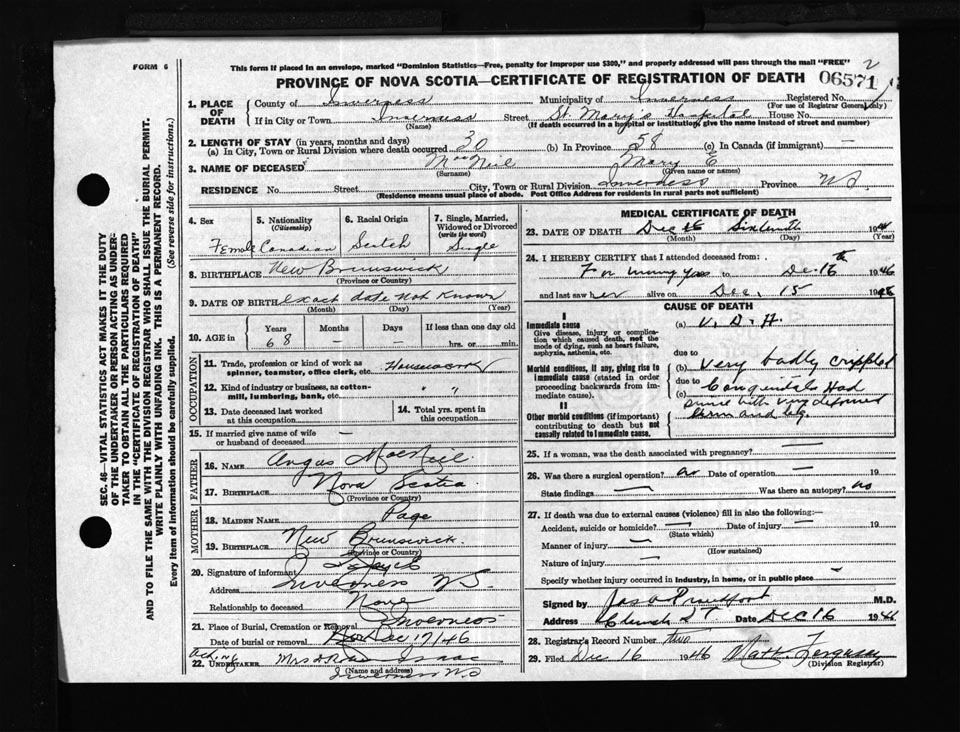 FORM 6
This form if placed in an envelope, marked "Dominion Statistics—Free, penalty for improper use $300," and properly addressed will pass through the mail "FREE"
2
PROVINCE OF NOVA SCOTIA—CERTIFICATE OF REGISTRATION OF DEATH
06571
1. PLACE OF DEATH
County of Inverness Municipality of Inverness Registered No.
(For use of Registrar General only)
If in City or Town Inverness Street St. Mary's Hospital House No.
(Name) (If death occurred in a hospital or institution, give the name instead of street and number)
2. LENGTH OF STAY (in years, months and days)
(a) In City, Town or Rural Division where death occurred 30 (b) In Province 58 (c) In Canada (if immigrant) —
3. NAME OF DECEASED MacNeil Mary E
(Surname) (Given name or names)
RESIDENCE No. Street City, Town or Rural Division Inverness Province N.S.
(Residence means usual place of abode. Post Office Address for residents in rural parts not sufficient)
SEC. 46—VITAL STATISTICS ACT MAKES IT THE DUTY
OF THE UNDERTAKER OR PERSON ACTING AS UNDER-
TAKER TO OBTAIN ALL THE PARTICULARS REQUIRED
IN THE "CERTIFICATE OF REGISTRATION OF DEATH"
AND TO FILE THE SAME WITH THE DIVISION REGISTRAR WHO SHALL ISSUE THE BURIAL PERMIT.
WRITE PLAINLY WITH UNFADING INK. THIS IS A PERMANENT RECORD.
Every item of information should be carefully supplied. (See reverse side for instructions.)
4. Sex
Female
5. Nationality
(Citizenship)
Canadian
6. Racial Origin
Scotch
7. Single, Married,
Widowed or Divorced
(write the word)
Single
8. BIRTHPLACE New Brunswick
(Province or Country)
9. DATE OF BIRTH exact date not known
(Month) (Day) (Year)
10. AGE in
Years Months Days If less than one day old
68 — — hrs. or min.
OCCUPATION
11. Trade, profession or kind of work as
spinner, teamster, office clerk, etc. Housework
12. Kind of industry or business, as cotton-
mill, lumbering, bank, etc. " "
13. Date deceased last worked
at this occupation
14. Total yrs. spent in
this occupation
15. If married give name of wife
or husband of deceased —
FATHER
16. NAME Angus MacNeil
17. BIRTHPLACE Nova Scotia
(Province or Country)
MOTHER
18. MAIDEN NAME Page
19. BIRTHPLACE New Brunswick
(Province or Country)
20. Signature of informant
Address Inverness N.S.
Relationship to deceased None
21. Place of Burial, Cremation or Removal Inverness
Date of burial or removal Dec 17/46
Acting
22. UNDERTAKER Mrs Isaac
(Name and address)
Inverness N.S
MEDICAL CERTIFICATE OF DEATH
23. DATE OF DEATH Dec Sixteenth 1946
(Month) (Day) (Year)
24. I HEREBY CERTIFY that I attended deceased from:
For many yrs to Dec 16th 1946
and last saw her alive on Dec. 15 1946
CAUSE OF DEATH
I
Immediate cause
Give disease, injury or complica-
tion which caused death, not the
mode of dying, such as heart failure,
asphyxia, asthenia, etc.
(a) V. D. H.
due to
Morbid conditions, if any, giving rise to
immediate cause (stated in order
proceeding backwards from im-
mediate cause).
(b) Very badly crippled
due to
(c) Congenital Had
with very deformed
arm and leg.
II
Other morbid conditions (if important)
contributing to death but not
causally related to immediate cause.
25. If a woman, was the death associated with pregnancy? —
26. Was there a surgical operation? no Date of operation — 19
State findings — Was there an autopsy? no
27. If death was due to external causes (violence) fill in also the following:—
Accident, suicide or homicide? — Date of injury — 19
(State which)
Manner of injury —
(How sustained)
Nature of injury —
Specify whether injury occurred in industry, in home, or in public place —
Signed by Jas A Proudfoot M.D.
Address Date Dec 16 1946
28. Registrar's Record Number Two
29. Filed Dec 16 1946 Matt Ferguson
(Division Registrar)